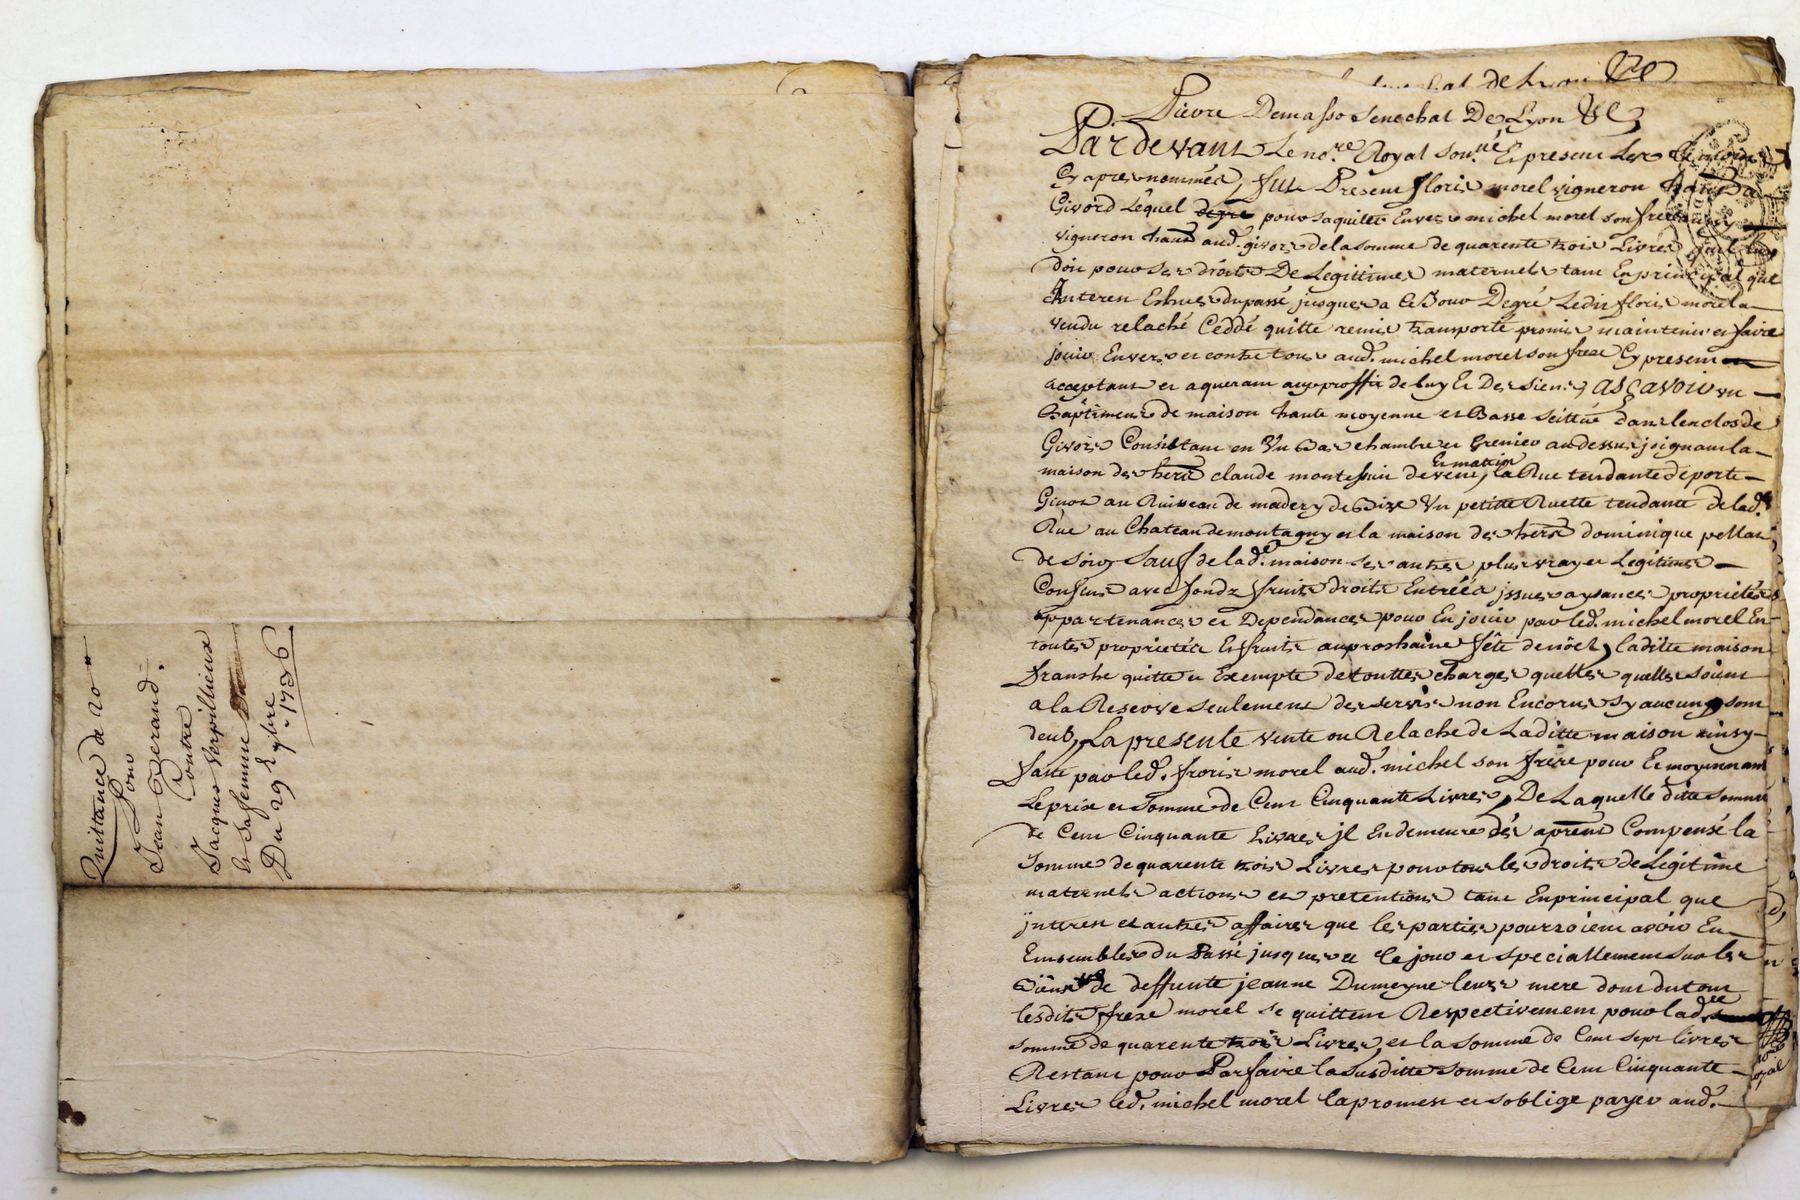 Quittance de 20 ll
Pour
Jean Berand.
Contre
Jacques Verpillieux
et Sa femme
Du 29 Xbre. 1736
senechal de Lyon &c
Pierre Demasso Senechal De Lyon &c
Pardevant Le nore. Royal Sou.né Et presens Les témoins
Cy apres nommés, fut Present floris morel vigneron habt. a
Givord Lequel degre pour saquiter Envers michel morel son frere aussy
vigneron habt aud. givors de la somme de quarente trois Livres quil luy
doit pour ses droits De Legittimes maternels tant En principal que
Interest Echues du passé jusques a ce Jour Degré Ledit floris morel a
vendu relaché Ceddé quitte remis transporté promis maintenir et faire
jouir Envers et contre tous aud. michel morel son frere Cy present
acceptant et aquerant au proffit de luy Et Des siens, asçavoir un
Baptiment de maison haute moyenne et Basse scittué dans lenclos de
Givors Consistant en Un Bas chambre et Grenier au dessus joignant la
maison des hers claude montessuin de vent, Et matin la Rue tendante de porte
Givor au Ruisseau de madery de Bize Un petitte Ruette tendante de lad.
Rüe au Chateau de montagny et la maison des hers dominique pellan
de soir, Sauf de lad. maison ses autres plus vray et Legitimes
Confins avec fondz fruits droits Entrées issues aysances proprietés
appartenances et Dependances pour En jouir par led. michel morel En
toutes proprietés Et fruits au prochaine fête de noël, laditte maison
franche quitte et Exempte de touttes charges quelles quelles soient
a la Reserve seulement des servis non Encorus sy aucuns sont
deub, La presente vente ou Relache de Laditte maison ainsy
faitte par led. floris morel aud. michel son frere pour Et moyennant
Le prix et somme de Cent Cinquante Livres, De Laquelle ditte somme
de Cent Cinquante Livres il En demeure dés aprent Compensé la
Somme de quarente trois Livres pour tous les droits de Legitime
maternels actions et pretentions tant En principal que
interest et autres affaires que les parties pourroient avoir Eu
Ensembles du Passé jusques a Ce jour et speciallement Sur les
Biens de deffunte jeanne Dumeyne leurs mere dont du tout
lesdits frere morel se quittent Respectivement pour lad.
somme de quarente trois Livres, et la somme de Cent sept livres
Restant pour Parfaire la susditte somme de Cent Cinquante
Livres led. michel morel la promest et soblige payer aud.